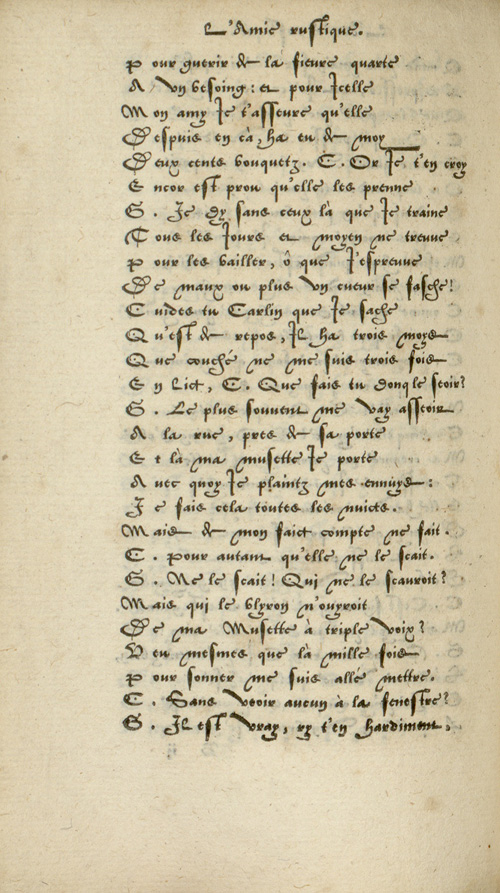 L'Amie rustique.
Pour guerir de la fieure quarte
A vn besoing: et pour Icelle
Mon amy Ie t'asseure qu'elle
Despuis en cà, ha eu de moy
Deux cents bouquetz. C. Or Ie t'en croy
Encor est prou qu'elle les prenne
G. Ie dy sans ceux là que Ie traine
Tous les Iours et moyen ne treuue
Pour les bailler, ô que I'espreuue
De maux ou plus vn cueur se fasche!
Cuides tu Carlin que Ie sache
Qu'est de repos, Il ha trois moys
Que couché ne me suis trois fois
En Lict, C. Que fais tu donq le seoir?
G. Le plus souuent me vay asseoir
A la rue, pres de sa porte
Et là ma musette Ie porte
Auec quoy Ie plaintz mes ennuys:
Ie fais cela toutes les nuicts.
Mais de mon faict compte ne fait.
C. Pour autant qu'elle ne le scait.
G. Ne le scait! Qui ne le scauroit?
Mais qui le blyron n'ouyroit
De ma Musette à triple voix?
Veu mesmes que là mille fois
Pour sonner me suis allé mettre.
C. Sans veoir aucun à la fenestre?
G. Il est vray, ry t'en hardiment.